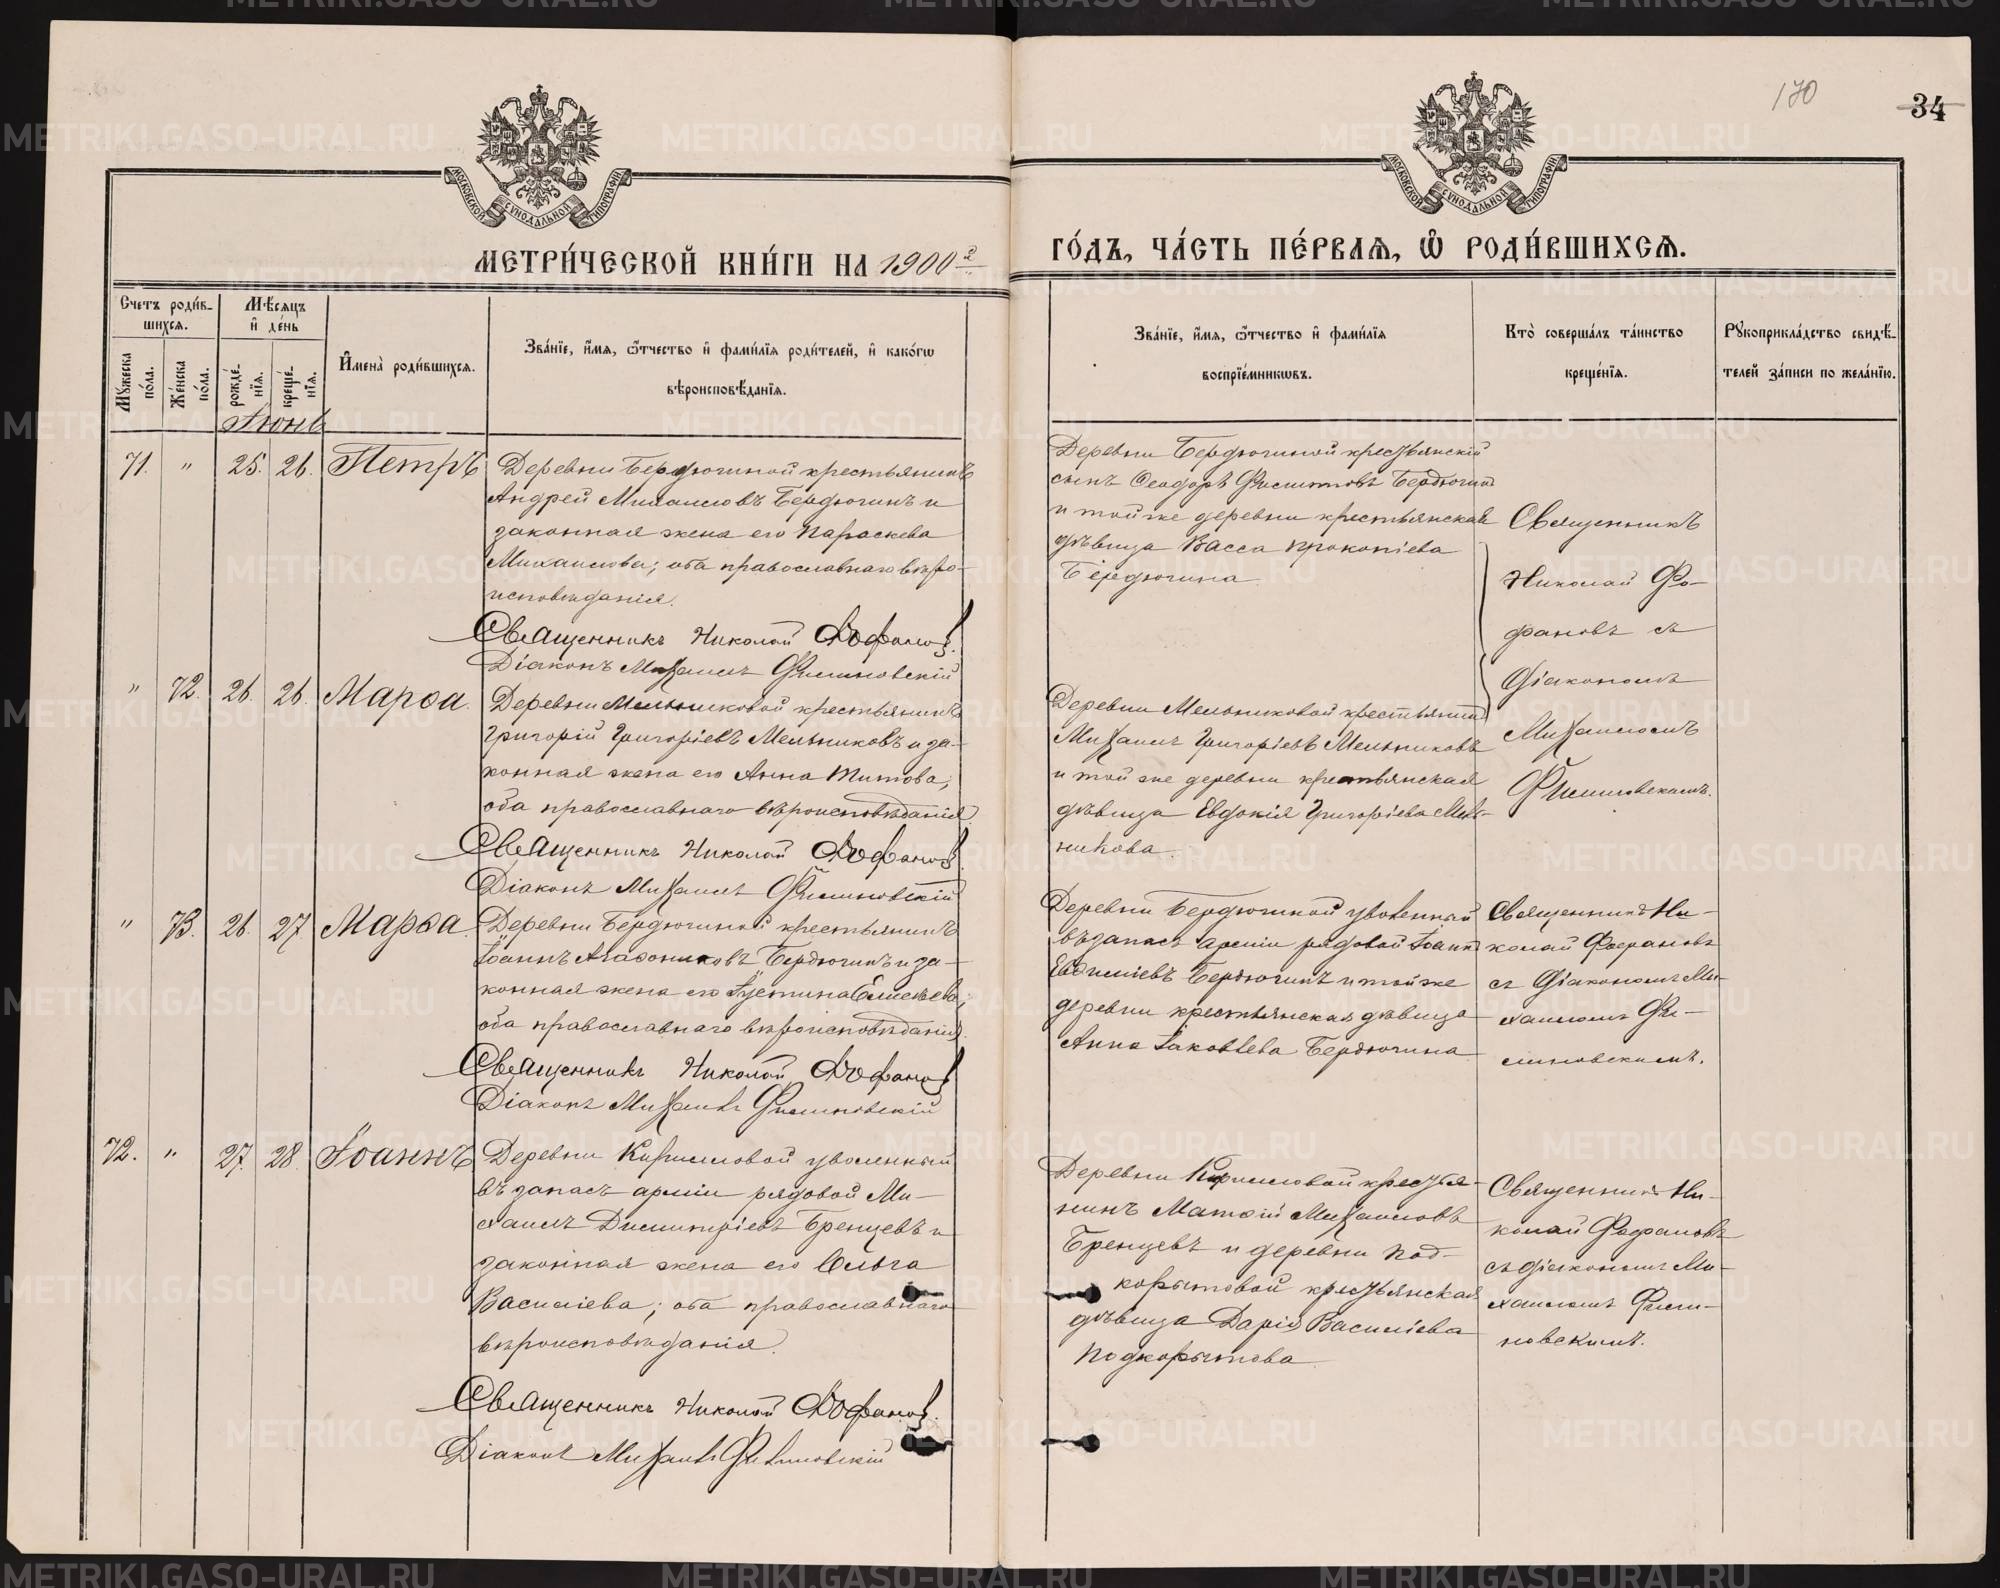 170
34
МОСКОВСКОЙ СѴНОДАЛЬНОЙ ТИПОГРАФІИ
МОСКОВСКОЙ СѴНОДАЛЬНОЙ ТИПОГРАФІИ
МЕТРИ́ЧЕСКОЙ КНИ́ГИ НА 1900й
ГО́ДЪ, ЧА́СТЬ ПЕ́РВАѦ, Ѡ҆ РОДИ́ВШИХСѦ.
Счетъ роди́в-
шихсѧ.
Мѣ́сѧцъ
и҆ де́нь
Мꙋжеска по́ла.
Же́нска по́ла.
рожде́-нїѧ.
креще́-нїѧ.
И҆мена̀ роди́вшихсѧ.
Зва́нїе, и҆́мѧ, ѻ҆́тчество и҆ фамі́лїѧ роди́телей, и҆ како́гѡ
вѣроисповѣ́данїѧ.
Зва́нїе, и҆́мѧ, ѻ҆́тчество и҆ фамі́лїѧ
воспрїе́мникѡвъ.
Кто̀ соверша́лъ та́инство
креще́нїѧ.
Рꙋкоприкла́дство свидѣ́-
телей за́писи по жела́нїю.
Іюнь
71. " 25. 26. Петръ
Деревни Бердюгиной крестьянинъ
Андрей Михаиловъ Бердюгинъ и
законная жена его Параскева
Михаилова; оба православнаго вѣро-
исповѣданія.
Священникъ Николай Фофановъ.
Діаконъ Михаилъ Филиновскій
Деревни Бердюгиной крестьянскій
сынъ Ѳеодоръ Филиповъ Бердюгинъ
и той же деревни крестьянская
дѣвица Васса Прокопіева
Бердюгина
Священникъ
Николай Фо-
фановъ съ
Діакономъ
Михаиломъ
Филиновскимъ.
" 72. 26. 26. Марѳа.
Деревни Мельниковой крестьянинъ
Григорій Григоріевъ Мельниковъ и за-
конная жена его Анна Титова;
оба православнаго вѣроисповѣданія.
Священникъ Николай Фофановъ
Діаконъ Михаилъ Филиновскій
Деревни Мельниковой крестьянинъ
Михаилъ Григоріевъ Мельниковъ
и той же деревни крестьянская
дѣвица Евдокія Григоріева Мель-
никова.
" 73. 26. 27 Марѳа.
Деревни Бердюгиной крестьянинъ
Іоаннъ Агаѳониковъ Бердюгинъ и за-
конная жена его Іустина
оба православнаго вѣроисповѣданія.
Священникъ Николай Фофановъ
Діаконъ Михаилъ Филиновскій
Деревни Бердюгиной уволенный
въ запасъ арміи рядовой Іоаннъ
Евѳиміевъ Бердюгинъ и той же
деревни крестьянская дѣвица
Анна Іаковлева Бердюгина
Священникъ Ни-
колай Фофановъ
съ Діакономъ Ми-
хаиломъ Фи-
линовскимъ.
72. " 27. 28. Іоаннъ
Деревни Кирилловой уволенный
въ запасъ арміи рядовой Ми-
хаилъ Димитріевъ Бренцевъ и
законная жена его Ольга
Василіева; оба православнаго
вѣроисповѣданія.
Священникъ Николай Фофановъ.
Діаконъ Михаилъ Филиновскій
Деревни Кирилловой крестья-
нинъ Матѳій Михаиловъ
Бренцевъ и деревни Под-
корытовой крестьянская
дѣвица Дарія Василіева
Подкорытова.
Священникъ Ни-
колай Фофановъ
съ діакономъ Ми-
хаиломъ Фили-
новскимъ.
METRIKI.GASO-URAL.RU